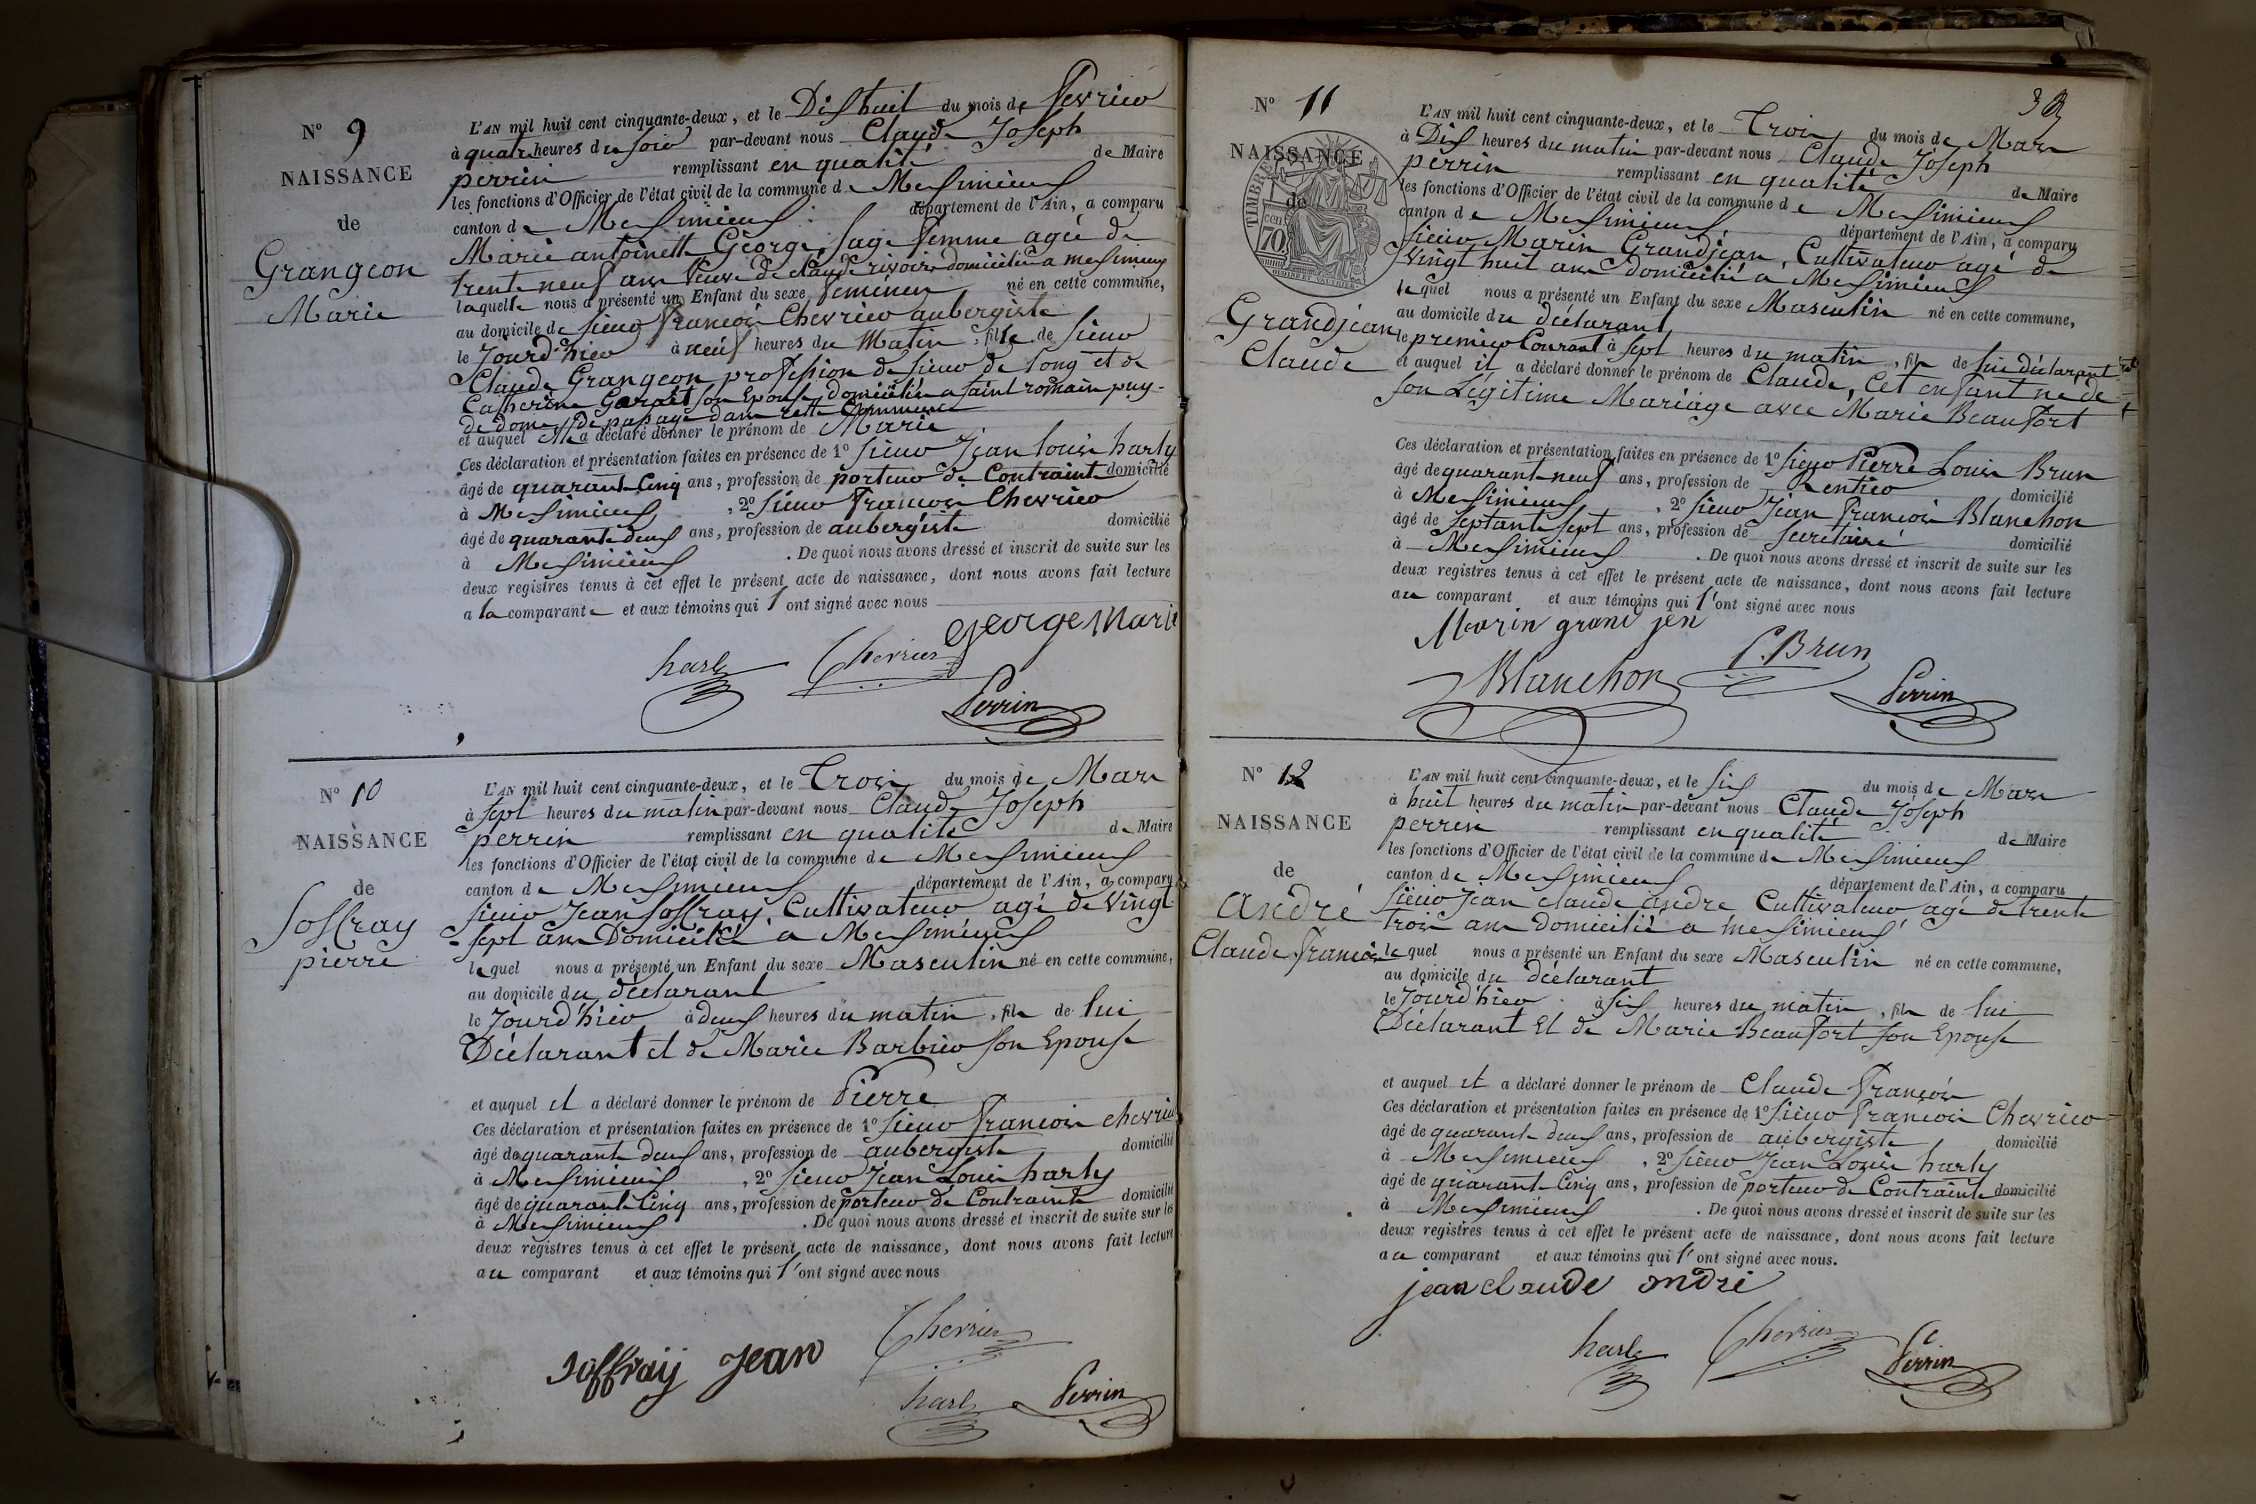 Nº 9
NAISSANCE
de
Grangeon
Marie
L'AN mil huit cent cinquante-deux, et le Dishuit du mois de fevrier
à quatre heures du soir par-devant nous Claude Joseph
perrin remplissant en qualité de Maire
les fonctions d'Officier de l'état civil de la commune de Messimieux
canton de Messimieux département de l'Ain, a comparu
Marie antoinette George, sage femme agée de
trente neuf ans veuve de claude rivoire domiciliée a messimieux
laquelle nous a présenté un Enfant du sexe feminen né en cette commune,
au domicile de sieur françois Chevrier aubergiste
le Jourd'hier à neuf heures du Matin, fille de sieur
Claude Grangeon profession de sieur de long et de
Catherine son Epouse domiciliée a saint romain puy-
de dome, de passage dans cette Commune
et auquel elle a déclaré donner le prénom de Marie
Ces déclaration et présentation faites en présence de 1º sieur Jean louis harly
âgé de quarant-Cinq ans, profession de porteur de Contrainte domicilié
à Messimieux, 2º sieur françois Chevrier
âgé de quarante deux ans, profession de aubergiste domicilié
à Messimieux. De quoi nous avons dressé et inscrit de suite sur les
deux registres tenus à cet effet le présent acte de naissance, dont nous avons fait lecture
a la comparante et aux témoins qui l'ont signé avec nous
George Marie
harly Chevrier
Perrin
Nº 10
NAISSANCE
de
Soffray
pierre
L'AN mil huit cent cinquante-deux, et le Trois du mois de Mars
à sept heures du matin par-devant nous Claude Joseph
perrin remplissant en qualité de Maire
les fonctions d'Officier de l'état civil de la commune de Messimieux
canton de Messimieux département de l'Ain, a comparu
sieur Jean Soffray, Cultivateur agé de vingt
-sept ans Domicilié a Messimieux
lequel nous a présenté un Enfant du sexe Masculin né en cette commune,
au domicile du déclarant
le Jourd'hier à deux heures du matin, fils de lui
Déclarant et de Marie Barbier son Epouse
et auquel il a déclaré donner le prénom de Pierre
Ces déclaration et présentation faites en présence de 1º sieur françois chevrier
âgé de quarante deux ans, profession de aubergiste domicilié
à Messimieux, 2º sieur Jean Louis harly
âgé de quarante Cinq ans, profession de porteur de Contrainte domicilié
à Messimieux. De quoi nous avons dressé et inscrit de suite sur les
deux registres tenus à cet effet le présent acte de naissance, dont nous avons fait lecture
au comparant et aux témoins qui l'ont signé avec nous
Chevrier
soffraij Jean
harly Perrin
Nº 11
NAISSANCE
de
TIMBRE
70
Grandjean
Claude
L'AN mil huit cent cinquante-deux, et le Trois du mois de Mars
à Dix heures du matin par-devant nous Claude Joseph
perrin remplissant en qualité de Maire
les fonctions d'Officier de l'état civil de la commune de Messimieux
canton de Messimieux département de l'Ain, a comparu
sieur Marin Grandjean, Cultivateur agé de
vingt huit ans domicilié a Messimieux
lequel nous a présenté un Enfant du sexe Masculin né en cette commune,
au domicile du déclarant
le premier Courant à sept heures du matin, fils de lui déclarant
et auquel il a déclaré donner le prénom de Claude, Cet enfant né de
son Légitime Mariage avec Marie Beaufort
Ces déclaration et présentation faites en présence de 1º sieur Pierre Louis Brun
âgé de quarant-neuf ans, profession de Rentier domicilié
à Messimieux, 2º sieur Jean françois Blanchon
âgé de septante sept ans, profession de secretaire domicilié
à Messimieux. De quoi nous avons dressé et inscrit de suite sur les
deux registres tenus à cet effet le présent acte de naissance, dont nous avons fait lecture
au comparant et aux témoins qui l'ont signé avec nous
Marin grand jen
Blanchon P. Brun
Perrin
Nº 12
NAISSANCE
de
andré
Claude françois
L'AN mil huit cent cinquante-deux, et le six du mois de Mars
à huit heures du matin par-devant nous Claude Joseph
perrin remplissant en qualité de Maire
les fonctions d'Officier de l'état civil de la commune de Messimieux
canton de Messimieux département de l'Ain, a comparu
sieur Jean claude andre Cultivateur agé de trente
trois ans domicilié a messimieux
lequel nous a présenté un Enfant du sexe Masculin né en cette commune,
au domicile du déclarant
le Jourd'hier à six heures du matin, fils de lui
Déclarant Et de Marie Beaufort son Epouse
et auquel il a déclaré donner le prénom de Claude françois
Ces déclaration et présentation faites en présence de 1º sieur françois Chevrier
âgé de quarante deux ans, profession de aubergiste domicilié
à Messimieux, 2º sieur Jean Louis harly
âgé de quarant-Cinq ans, profession de porteur de Contrainte domicilié
à Messimieux. De quoi nous avons dressé et inscrit de suite sur les
deux registres tenus à cet effet le présent acte de naissance, dont nous avons fait lecture
au comparant et aux témoins qui l'ont signé avec nous.
jean claude andré
harly Chevrier
Perrin